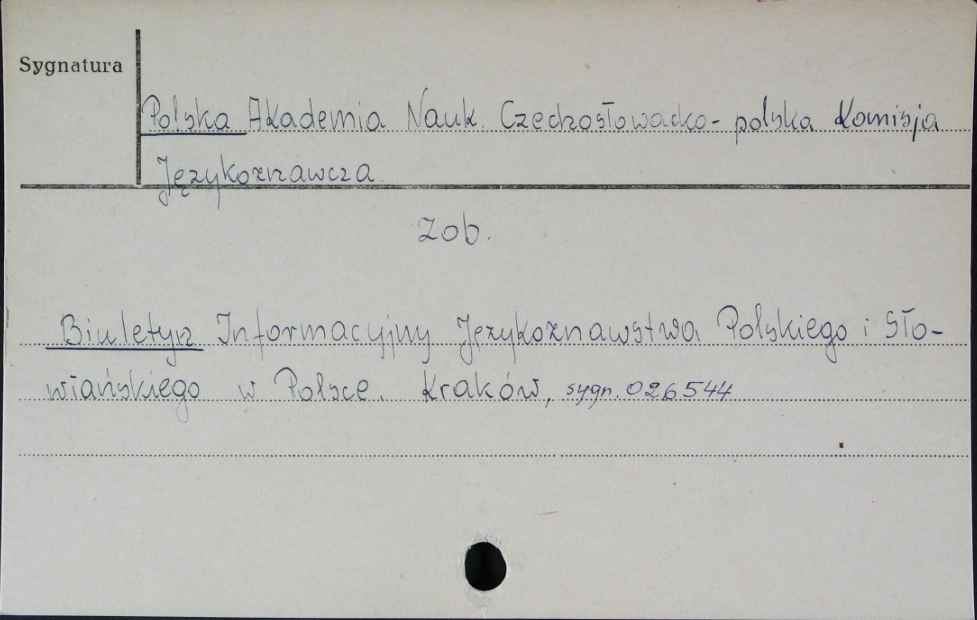 Sygnatura
Polska Akademia Nauk. Czechosłowacko-polska Komisja
Językoznawcza
zob.
Biuletyn Informacyjny Językoznawstwa Polskiego i Sło-
wiańskiego w Polsce. Kraków, sygn. 026544